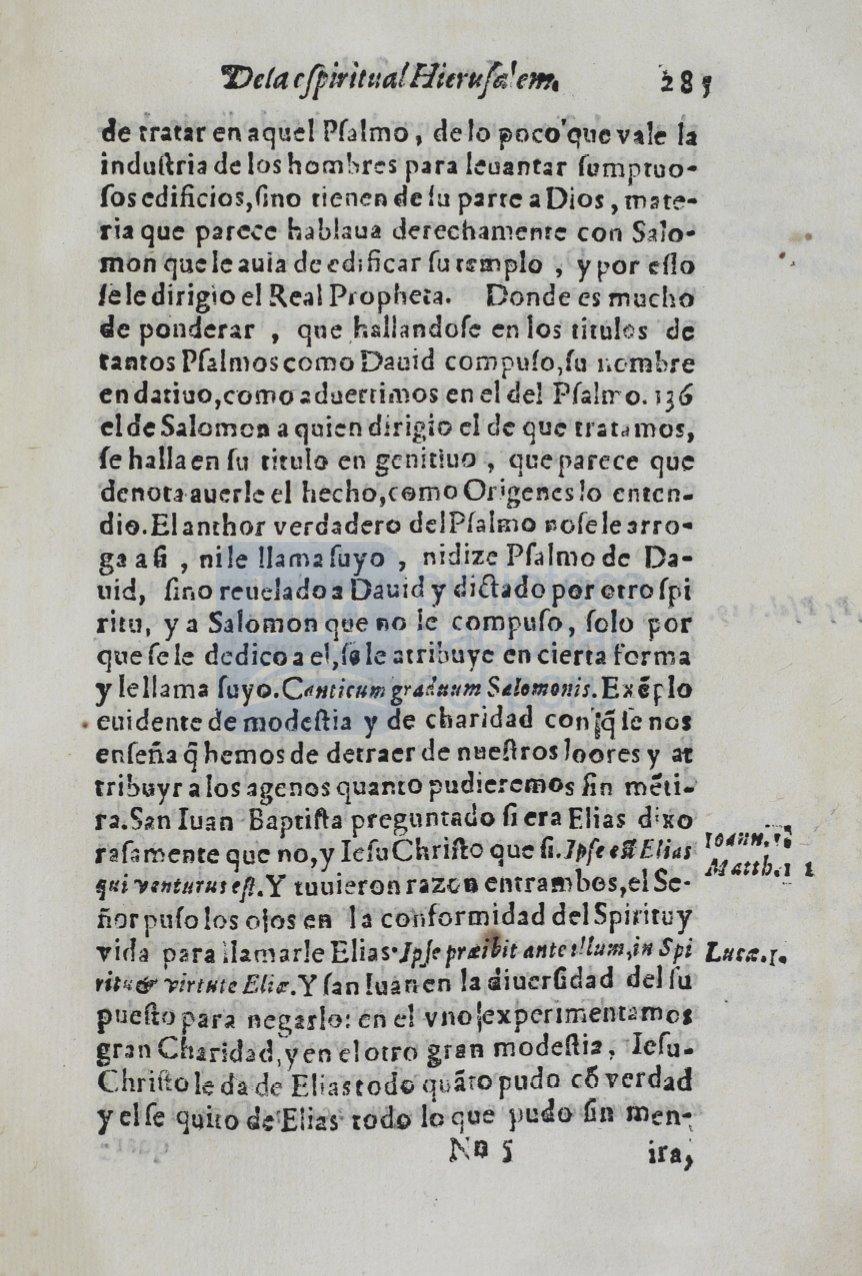 De la eſpiritual Hieruſalem. 285
de tratar en aquel Pſalmo, de lo poco que vale la
induſtria de los hombres para leuantar ſumptuo-
ſos edificios, ſino tienen de ſu parte a Dios, mate-
ria que parece hablaua derechamente con Salo-
mon que le auia de edificar ſu templo , y por eſſo
ſe le dirigio el Real Propheta. Donde es mucho
de ponderar , que hallandoſe en los titulos de
tantos Pſalmos como Dauid compuſo, ſu nombre
en datiuo, como aduertimos en el del Pſalmo. 136
el de Salomon a quien dirigio el de que tratamos,
ſe halla en ſu titulo en genitiuo , que parece que
denota auerle el hecho, como Origenes lo enten-
dio. El anthor verdadero del Pſalmo no ſe le arro-
ga a ſi , ni le llama ſuyo , ni dize Pſalmo de Da-
uid, ſino reuelado a Dauid y dictado por otro ſpi
ritu, y a Salomon que no le compuſo, ſolo por
que ſe le dedico a el, ſe le atribuye en cierta forma
y le llama ſuyo. Canticum graduum Salomonis. Exẽplo
euidente de modeſtia y de charidad con q̃ ſe nos
enſeña q̃ hemos de detraer de nueſtros loores y at
tribuyr a los agenos quanto pudieremos ſin mẽti-
ra. San Iuan Baptiſta preguntado ſi era Elias dixo
raſamente que no, y Ieſu Chriſto que ſi. Ipſe eſt Elias
Ioann. 1.
qui venturus eſt. Y tuuieron razon entrambos, el Se-
Matth. 11
ñor puſo los ojos en la conformidad del Spiritu y
vida para llamarle Elias. Ipſe præibit ante illum, in Spi
Lucæ. 1.
ritu & virtute Eliæ. Y ſan Iuan en la diuerſidad del ſu
pueſto para negarlo: en el vno experimentamos
gran Charidad, y en el otro gran modeſtia, Ieſu-
Chriſto le da de Elias todo quãto pudo cõ verdad
y el ſe quito de Elias todo lo que pudo ſin men-
Nn 5 ira,